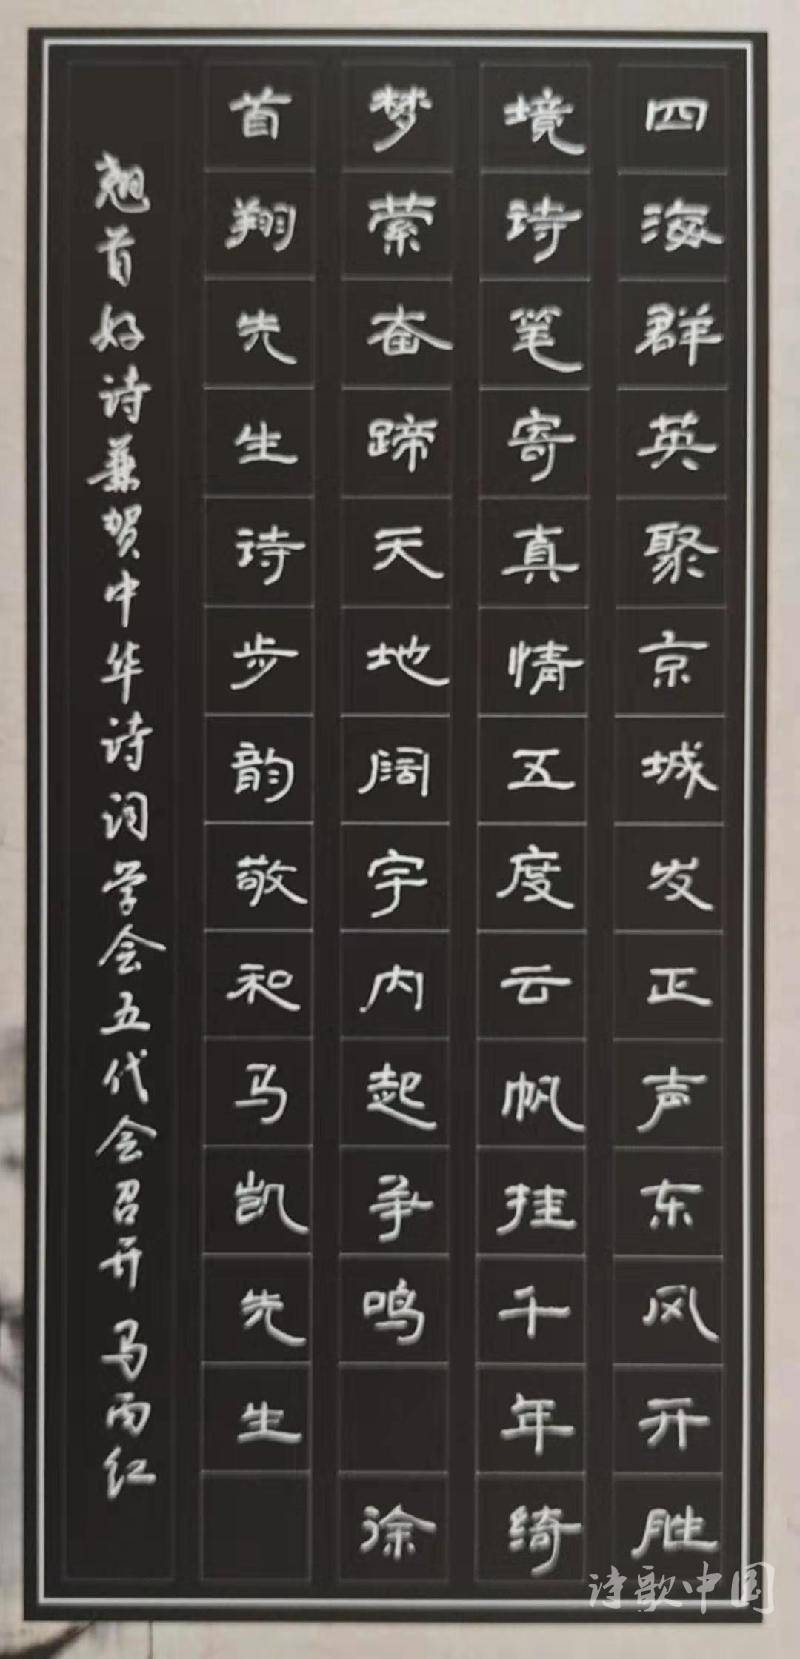 四海群英聚京城发正声东风开胜
境诗笔寄真情五度云帆挂千年绮
梦萦奋蹄天地阔宇内起争鸣 徐
首翔先生诗步韵敬和马凯先生
翘首好诗兼贺中华诗词学会五代会召开马雨红
诗歌中国